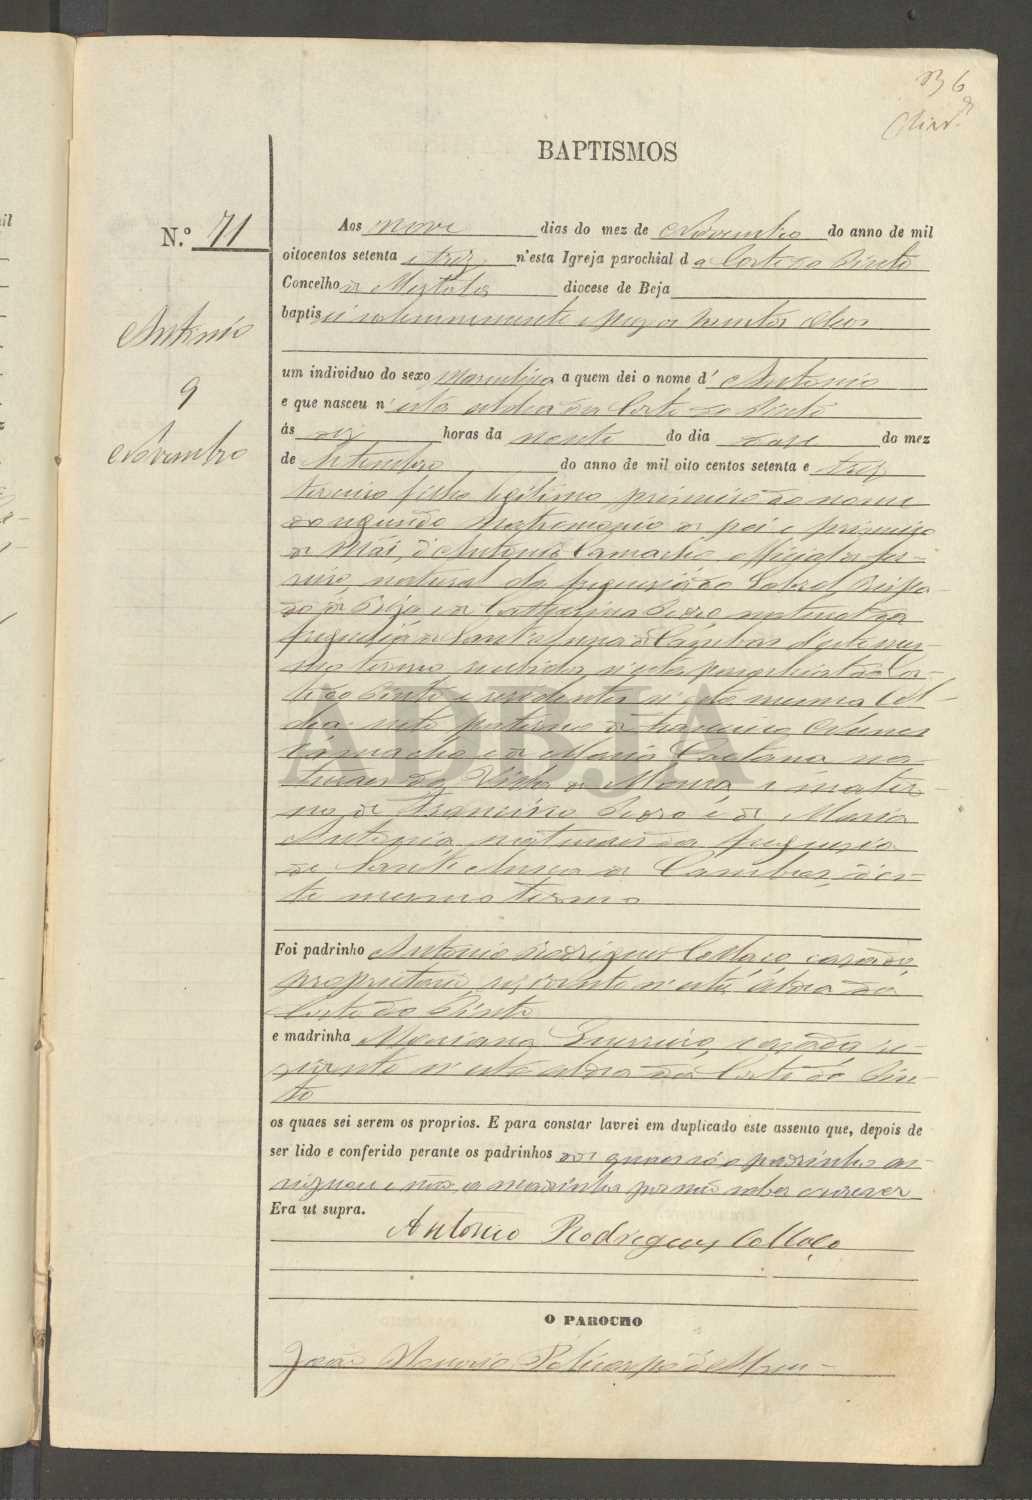 36
BAPTISMOS
N.º 71
Antonio
9
Novembro
Aos nove dias do mez de Novembro do anno de mil
oitocentos setenta e trez n'esta Igreja parochial da Corte do Pinto
Concelho de Mertola diocese de Beja
baptisei solemnemente e puz os Santos Oleos
um individuo do sexo masculino a quem dei o nome d' Antonio
e que nasceu n'esta aldeia da Corte do Pinto
ás dez horas da noute do dia doze do mez
de Setembro do anno de mil oito centos setenta e trez
terceiro filho legitimo primeiro do nome
do segundo matrimonio de pai e primeiro
de mãi, d'Antonio Camacho, official de fer-
reiro, natural da freguesia do Sobral Bispa-
do de Beja e de Catharina natural da
freguesia de Sant'Anna de Cambas d'este mes-
mo termo recebidos n'esta parochial da Cor-
te do Pinto e residentes n'esta mesma Al-
dea neto paterno de Francisco Nunes
Camacho e de Maria Caetana na-
turaes da Villa de Moura e mater-
no de Francisco e de Maria
Antonia naturaes da freguesia
de Sant'Anna de Cambas, d'es-
te mesmo termo
Foi padrinho Antonio Rodrigues Collaço, casado
proprietario, residente n'esta Aldea da
Corte do Pinto
e madrinha Mariana Guerreiro, casada re-
sidente n'esta aldea da Corte do Pin-
to
os quaes sei serem os proprios. E para constar lavrei em duplicado este assento que, depois de
ser lido e conferido perante os padrinhos dos quaes só o padrinho as-
signou e não a madrinha por não saber escrever
Era ut supra.
Antonio Rodrigues Collaço
O PAROCHO
João Policarpo
ADBJA